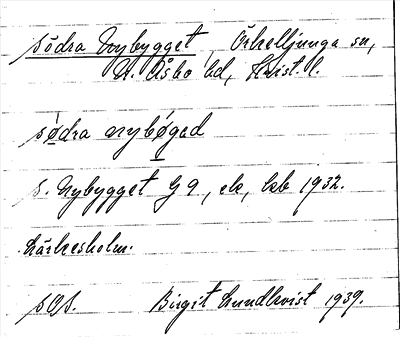 Södra Nybygget, Örkelljunga sn,
N. Åsbo hd, Krist. l.
södra nybøged
S. Nybygget G 9, ek, kb 1932.
Lärkesholm.
SOS. Birgit Lundkvist 1939.